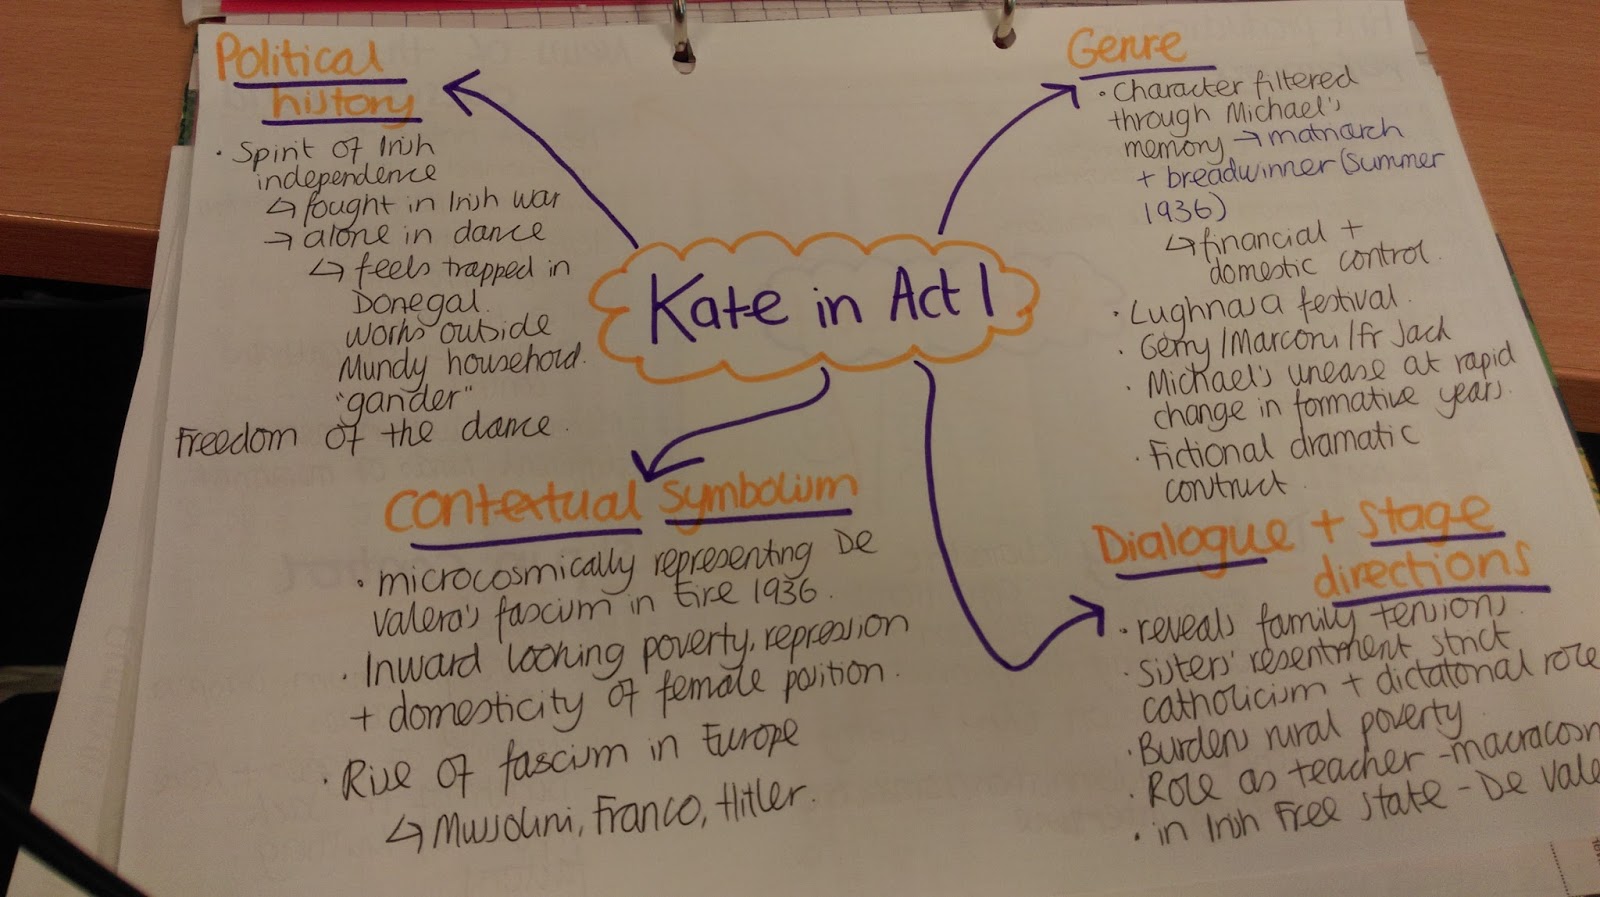 Kate in Act 1
Political
history
· Spirit of Irish
independence
↳ fought in Irish war
→ alone in dance
↳ feels trapped in
Donegal.
Works outside
Mundy household.
"gander"
Freedom of the dance.
Genre
· Character filtered
through Michael's
memory → matriarch
+ breadwinner (summer
1936)
↳ financial +
domestic control.
· Lughnasa festival.
· Gerry/Marconi/Fr Jack
· Michael's unease at rapid
change in formative years.
· Fictional dramatic
construct.
Contextual Symbolism
· microcosmically representing De
Valera's fascism in Eire 1936.
· Inward looking poverty, repression
+ domesticity of female position.
· Rise of fascism in Europe
↳ Mussolini, Franco, Hitler.
Dialogue + Stage
directions
· reveals family tensions.
· Sisters' resentment strict
catholicism + dictatorial role
· Burdens rural poverty
· Role as teacher - macrocosm
· in Irish Free State - De Vale